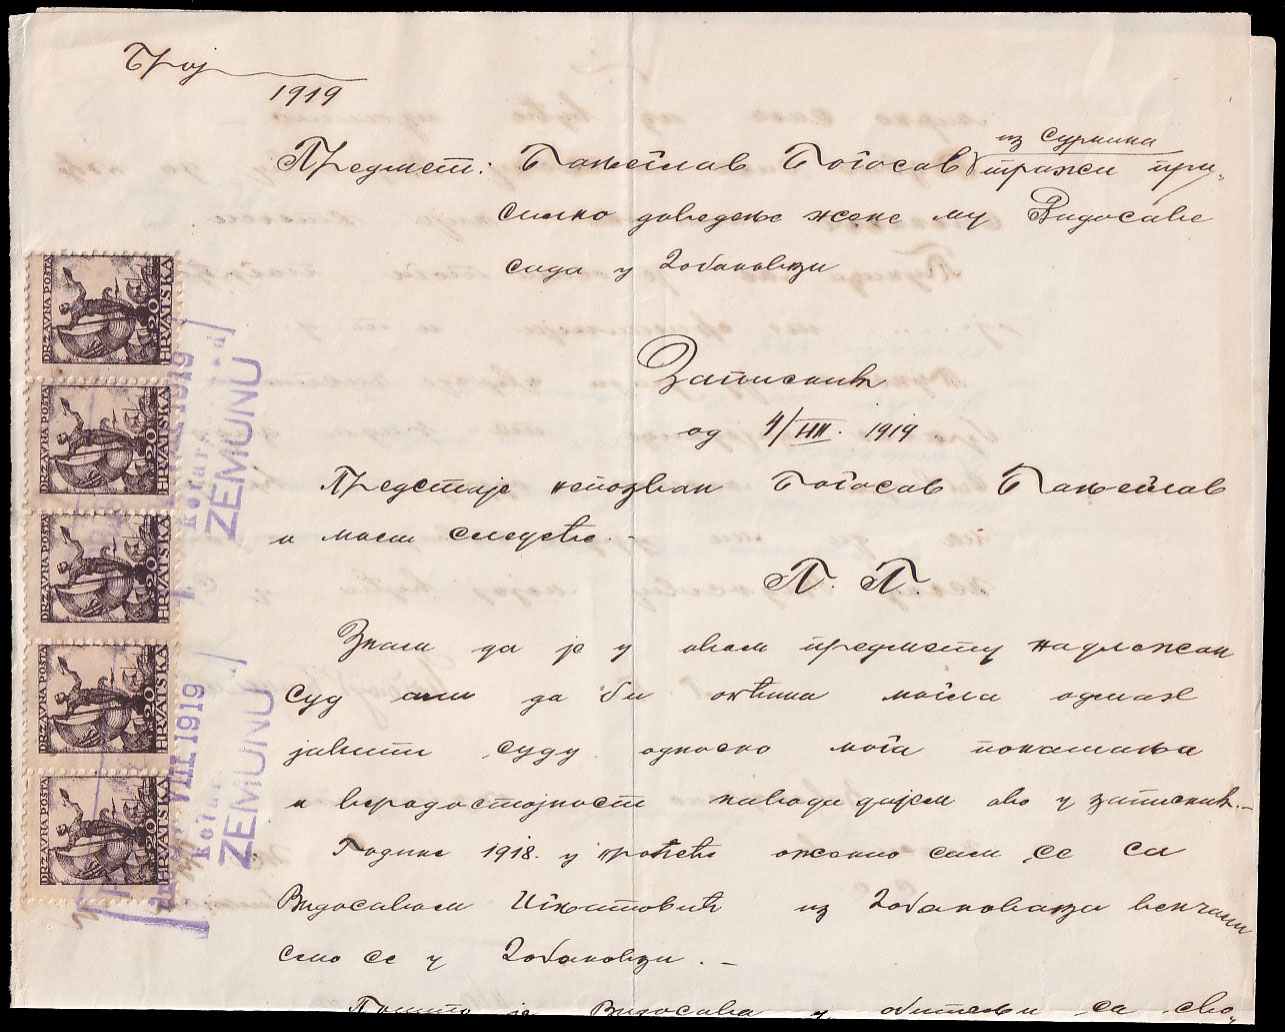 Број
1919
Предмет: Бањеглав Богосав из Сурчина тражи при„
силно доведење жене му Видосаве
сада у Добановци
Записник
од 4/VIII. 1919
Предстаје непозван Богосав Бањеглав
и моли следеће.-
П. П.
Знам да је у овом предмету надлежан
суд али да би општина могла одмах
јавити суду односно мога понашања
и веродостојност навода дајем ово у записник.-
Године 1918. у пролеће оженио сам се са
Видосавом Игњатовић из Добановаца венчани
смо се у Добановци.-
Пошто је Видосава у обитељи са сво„
DRŽAVNA POŠTA
20
HRVATSKA
DRŽAVNA POŠTA
20
HRVATSKA
DRŽAVNA POŠTA
20
HRVATSKA
DRŽAVNA POŠTA
20
HRVATSKA
DRŽAVNA POŠTA
20
HRVATSKA
1919
kotara
ZEMUNU
VIII. 1919
kotar
ZEMUNU